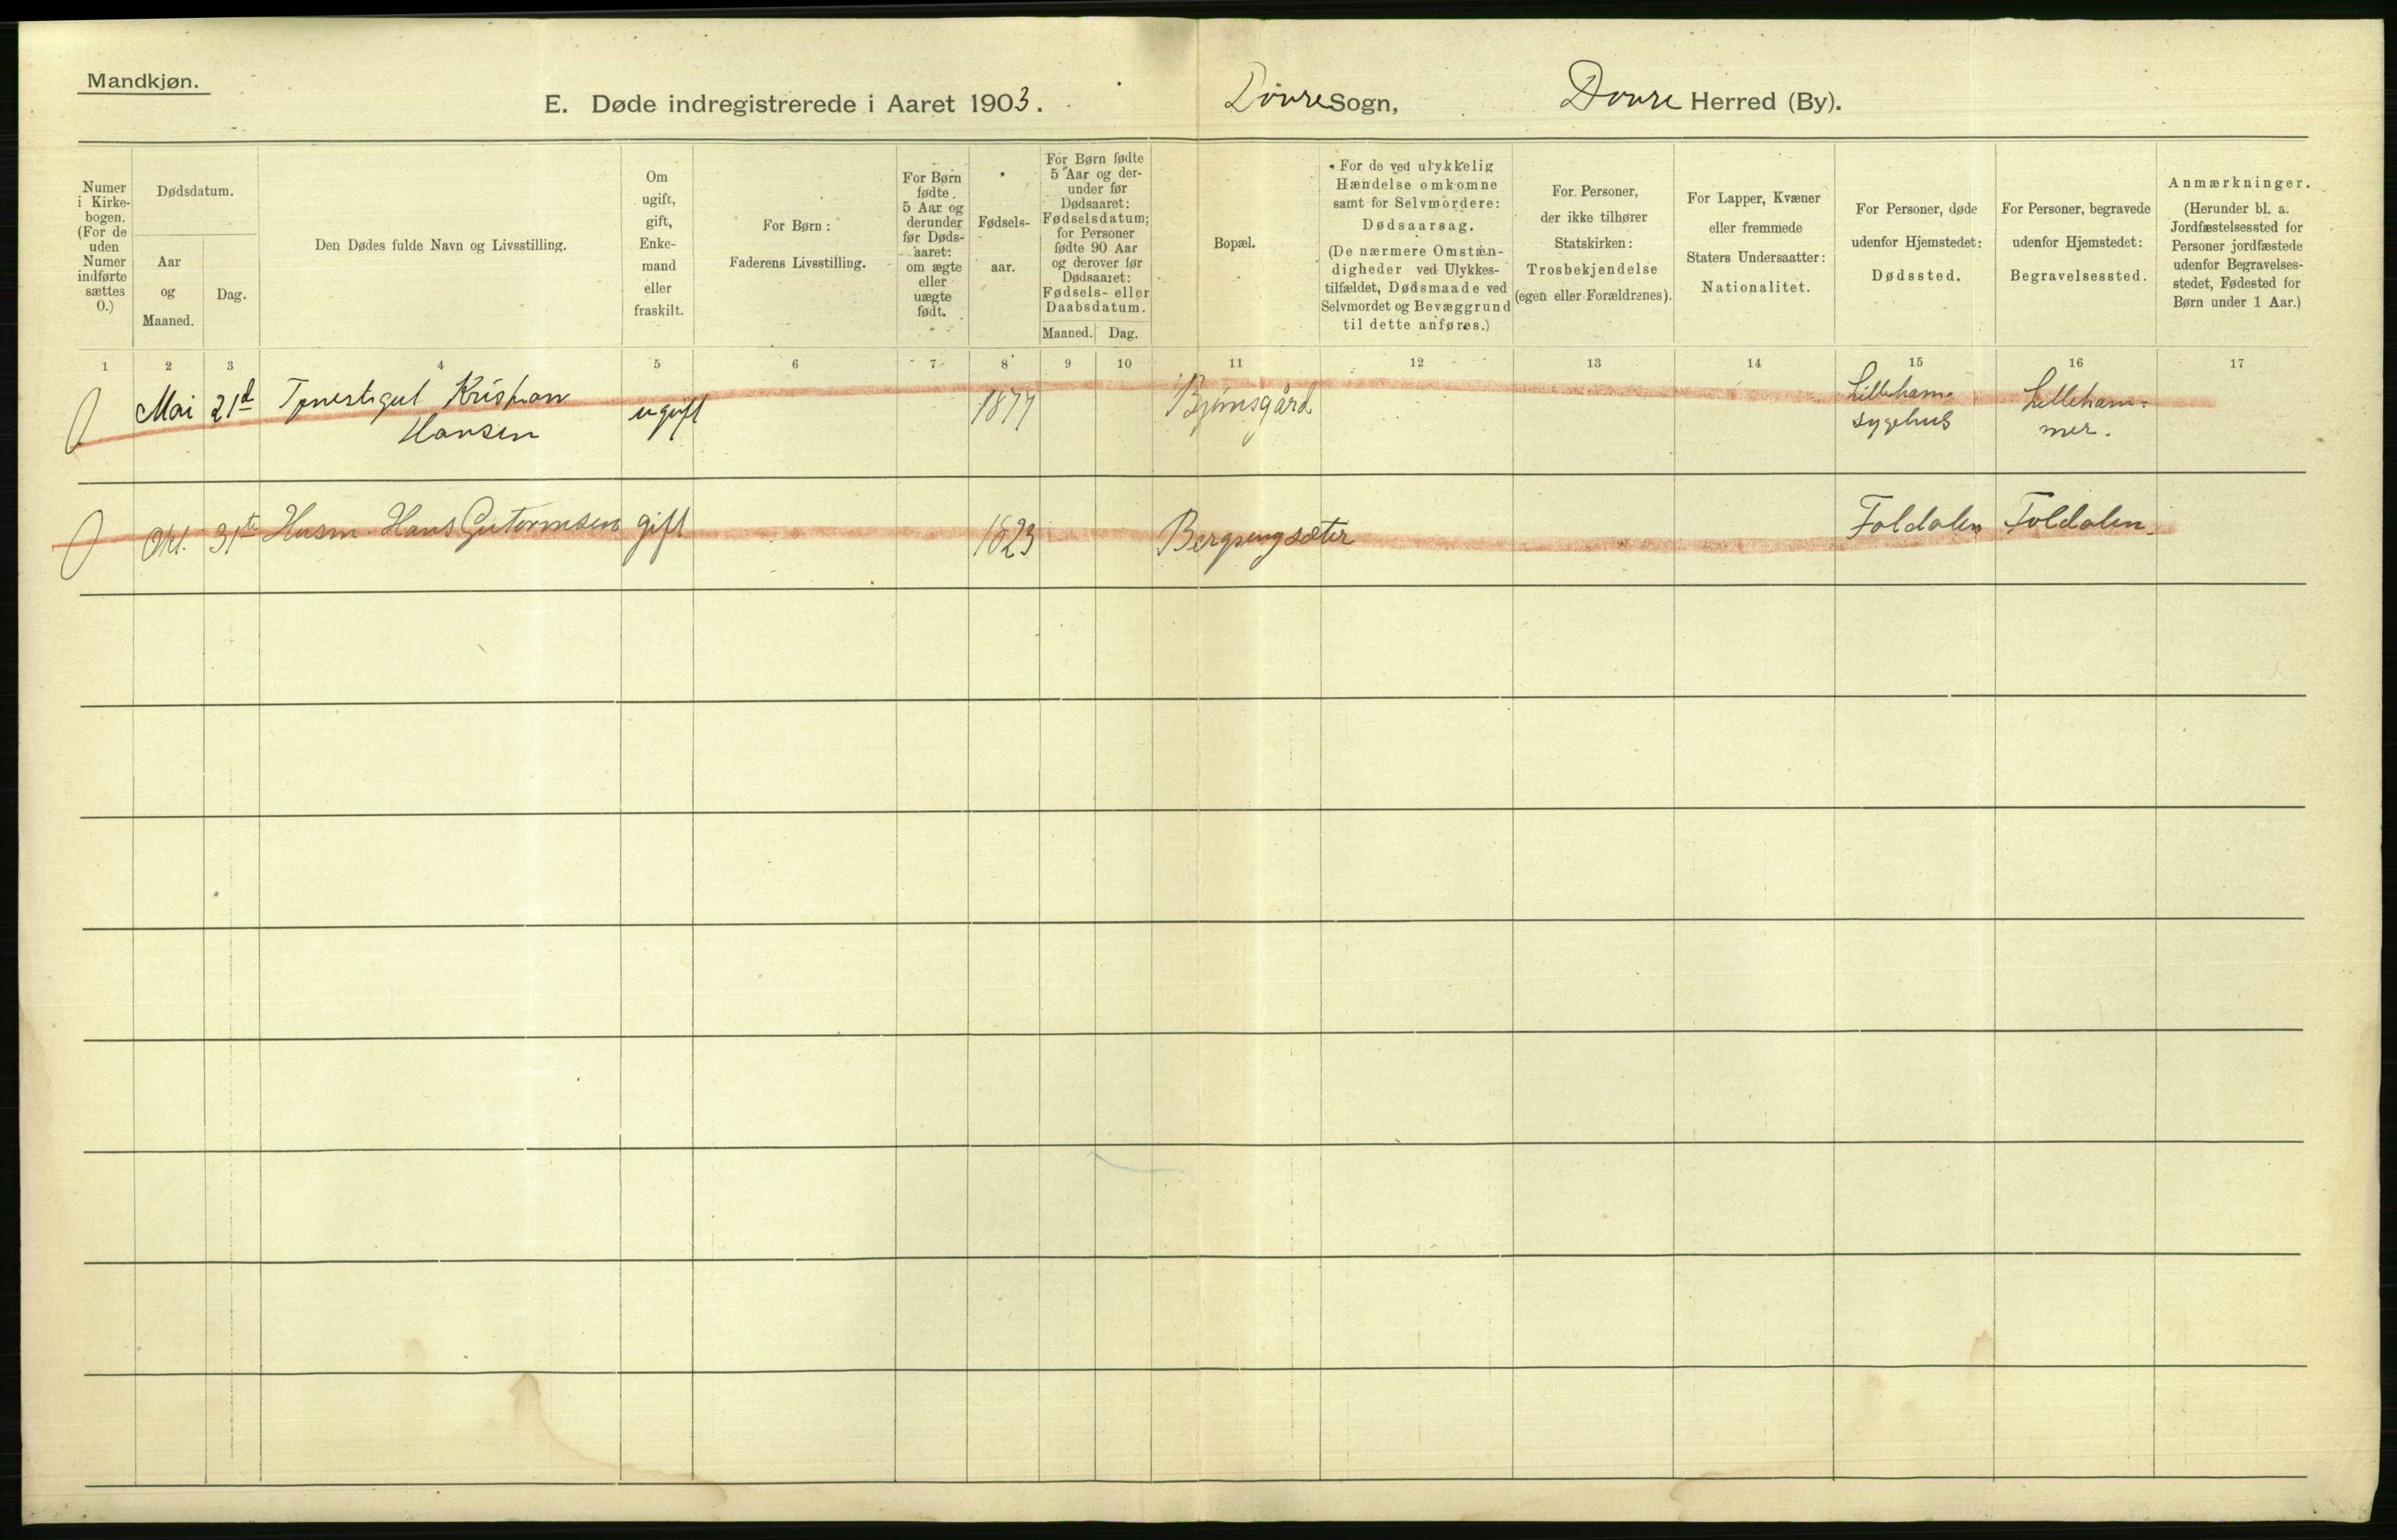 Mandkjøn.
E. Døde indregistrerede i Aaret 1903. Dovre Sogn, Dovre Herred (By).
Numer
i Kirke-
bogen.
(For de
uden
Numer
indførte
sættes
0.)
Dødsdatum.
Aar
og
Maaned.
Dag.
Den Dødes fulde Navn og Livsstilling.
Om
ugift,
gift,
Enke-
mand
eller
fraskilt.
For Børn:
Faderens Livsstilling.
For Børn
fødte
5 Aar og
derunder
før Døds-
aaret:
om ægte
eller
uægte
født.
Fødsels-
aar.
For Børn fødte
5 Aar og der-
under før
Dødsaaret:
Fødselsdatum;
for Personer
fødte 90 Aar
og derover før
Dødsaaret:
Fødsels- eller
Daabsdatum.
Maaned. Dag.
Bopæl.
For de ved ulykkelig
Hændelse omkomne
samt for Selvmordere:
Dødsaarsag.
(De nærmere Omstæn-
digheder ved Ulykkes-
tilfældet, Dødsmaade ved
Selvmordet og Bevæggrund
til dette anføres.)
For Personer,
der ikke tilhører
Statskirken:
Trosbekjendelse
(egen eller Forældrenes).
For Lapper, Kvæner
eller fremmede
Staters Undersaatter:
Nationalitet.
For Personer, døde
udenfor Hjemstedet:
Dødssted.
For Personer, begravede
udenfor Hjemstedet:
Begravelsessted.
Anmærkninger.
(Herunder bl. a.
Jordfæstelsessted for
Personer jordfæstede
udenfor Begravelses-
stedet, Fødested for
Børn under 1 Aar.)
1 2 3 4 5 6 7 8 9 10 11 12 13 14 15 16 17
0 Mai 21d Tjenestegut Kristian ugift 1877 Bjørnsgård Lilleham. Lilleham-
Hansen sygehus mer.
0 Okt. 31te Husm. Hans Gutormsen gift 1823 Bergsengsæter Foldalen Foldalen.